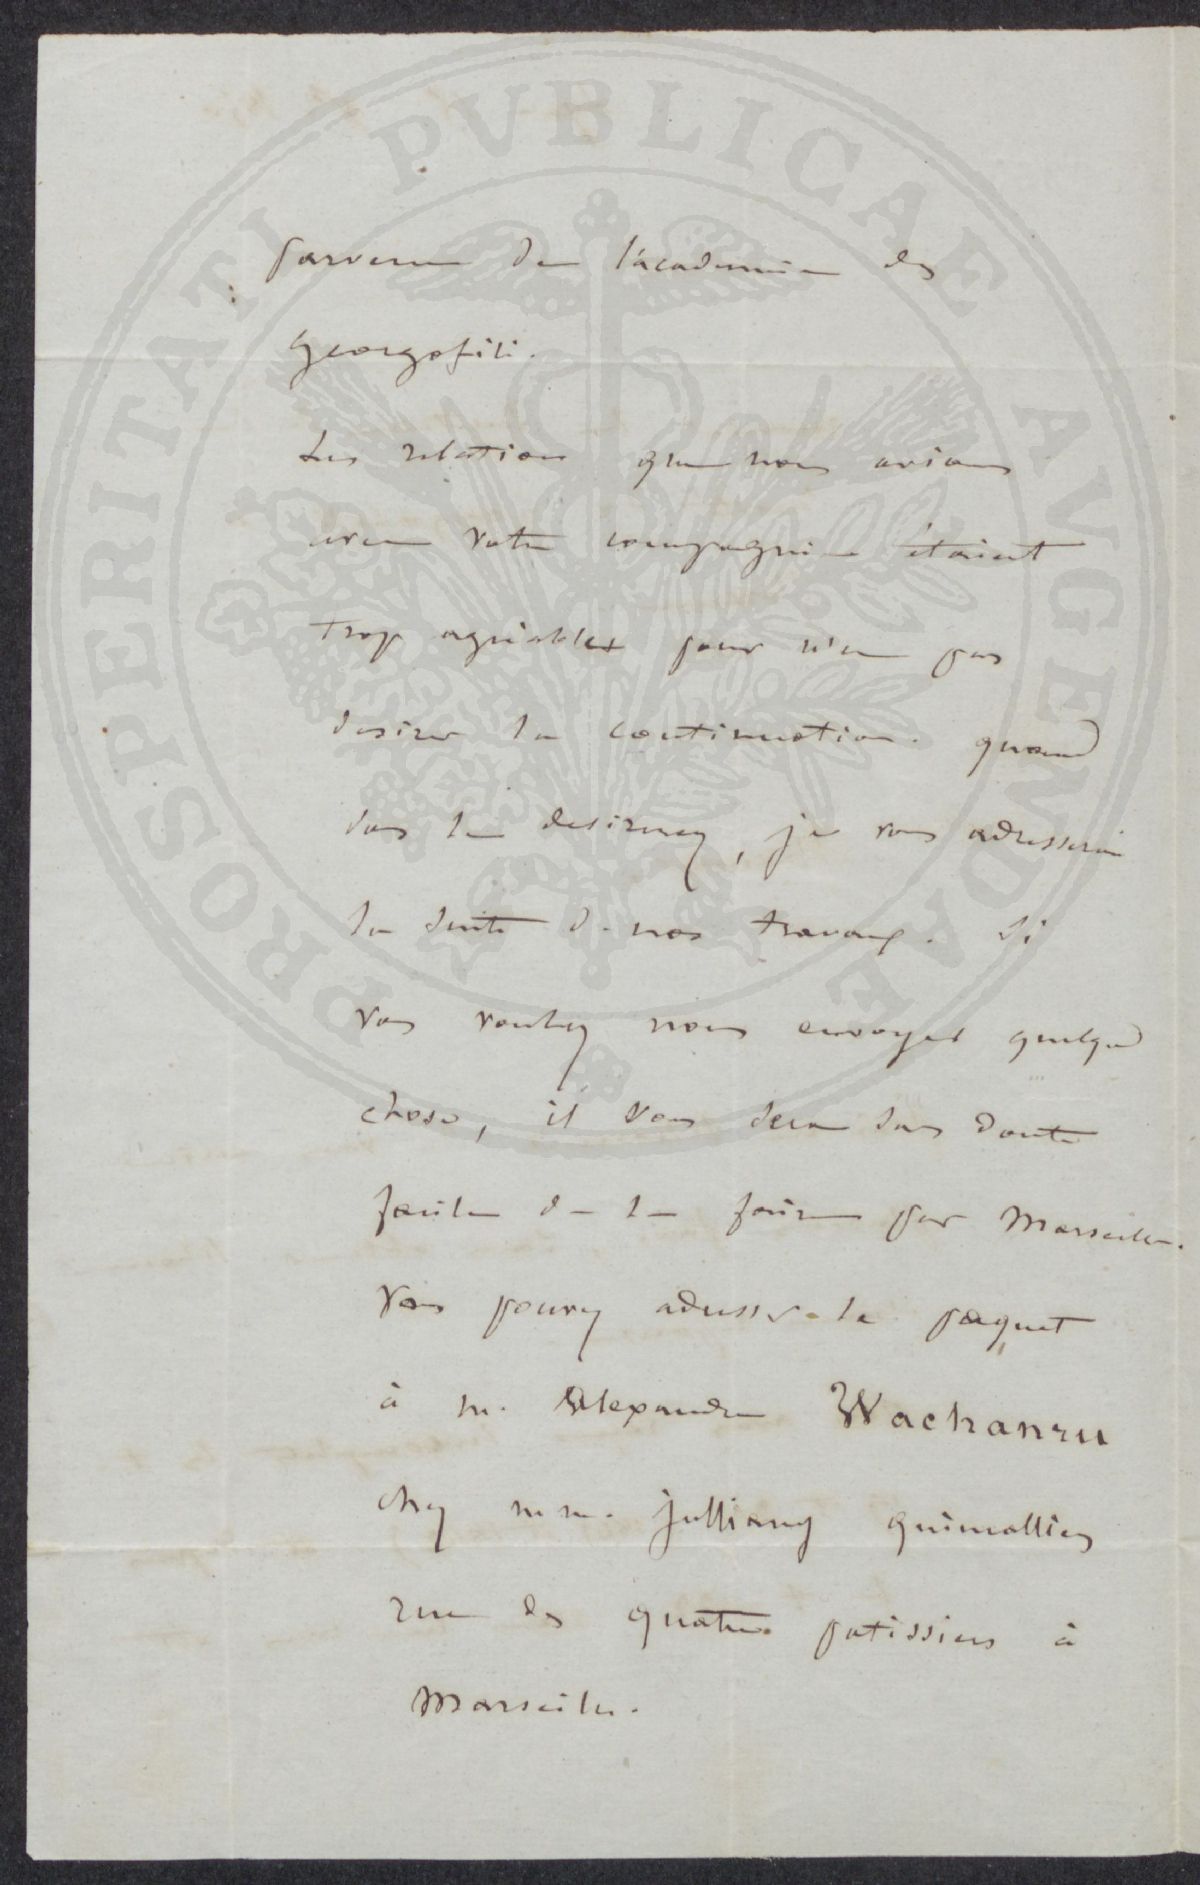 PROSPERITATI PVBLICAE AVGENDAE
parvenu de l'académie des
georgofili.
Les relations que nous avions
avec votre compagnie étaient
trop agréables pour n'en pas
desirer la continuation. quand
vous le desirerez, je vous adresserai
la suite de nos travaux. Si
vous voulez nous envoyer quelque
chose, il vous sera sans doute
facile de le faire par Marseille.
Vous pourez adresser le paquet
à m. Alexandre Wachanru
chez mm. Julliany
rue des quatre patissiers à
Marseille.